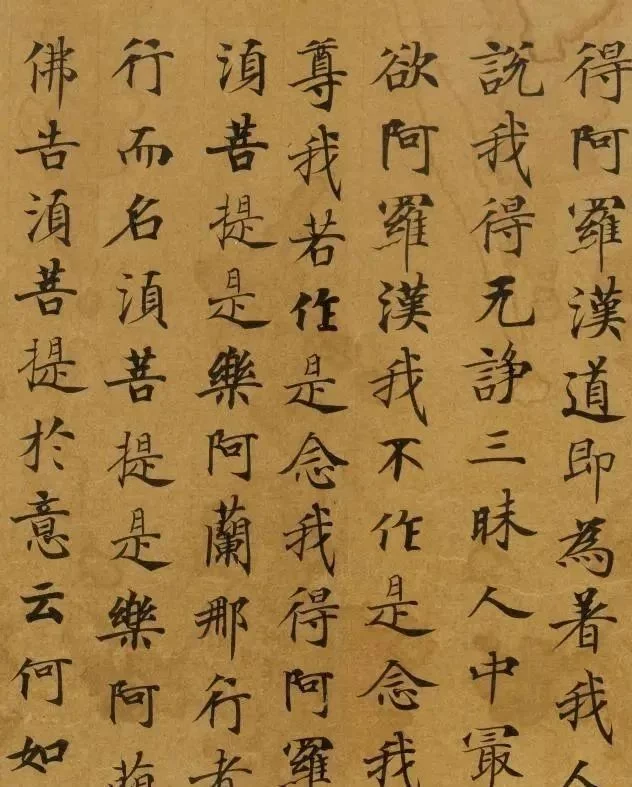 得阿羅漢道即為著我人
說我得无諍三昧人中冣
欲阿羅漢我不作是念我
尊我若作是念我得阿羅
湏菩提是樂阿蘭那行者
行而名湏菩提是樂阿蘭
佛告湏菩提於意云何如